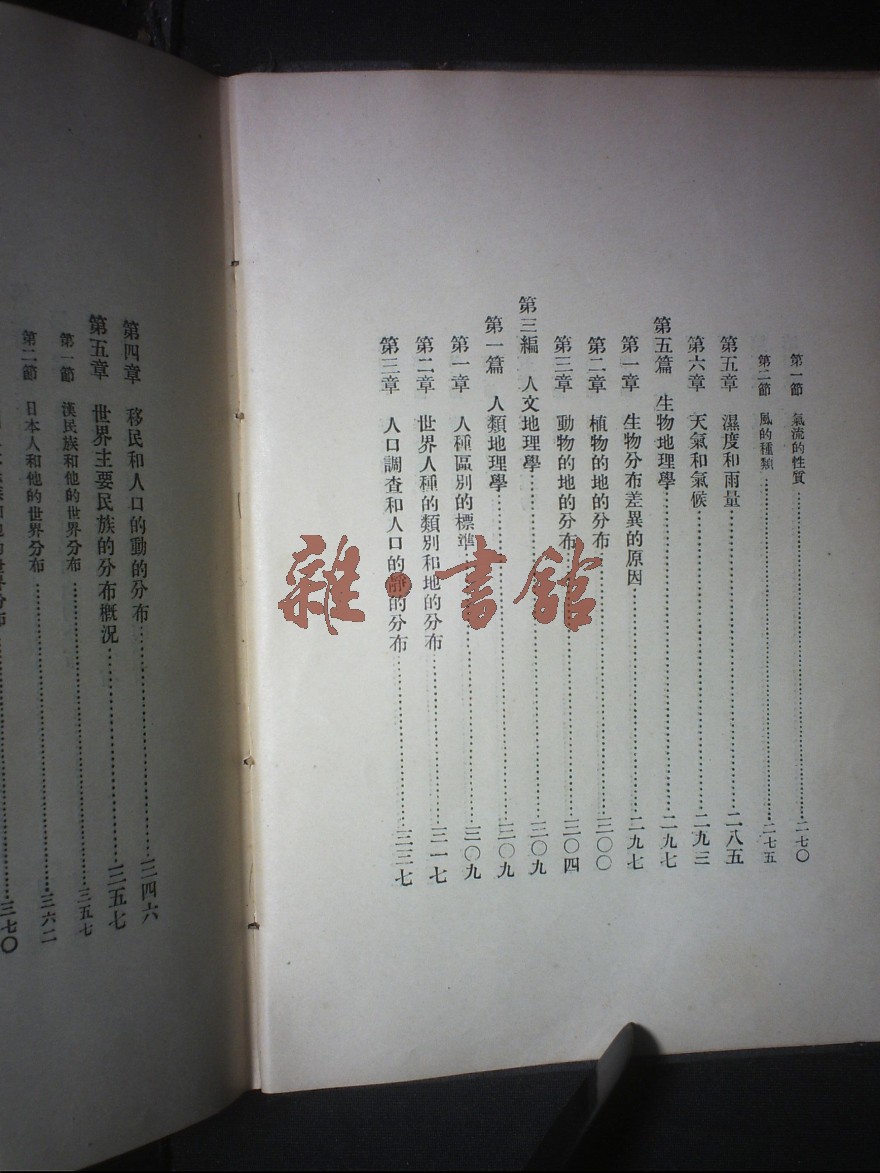 第一節 氣流的性質……二七〇
第二節 風的種類……二七五
第五章 濕度和雨量……二八五
第六章 天氣和氣候……二九三
第五篇 生物地理學……二九七
第一章 生物分布差異的原因……二九七
第二章 植物的地的分布……三〇〇
第三章 動物的地的分布……三〇四
第三編 人文地理學……三〇九
第一篇 人類地理學……三〇九
第一章 人種區別的標準……三〇九
第二章 世界人種的類別和地的分布……三一七
第三章 人口調查和人口的靜的分布……三三七
第四章 移民和人口的動的分布……三四六
第五章 世界主要民族的分布概況……三五七
第一節 漢民族和他的世界分布……三五七
第二節 日本人和他的世界分布……三六二
世界分布……三七〇
雜·書館